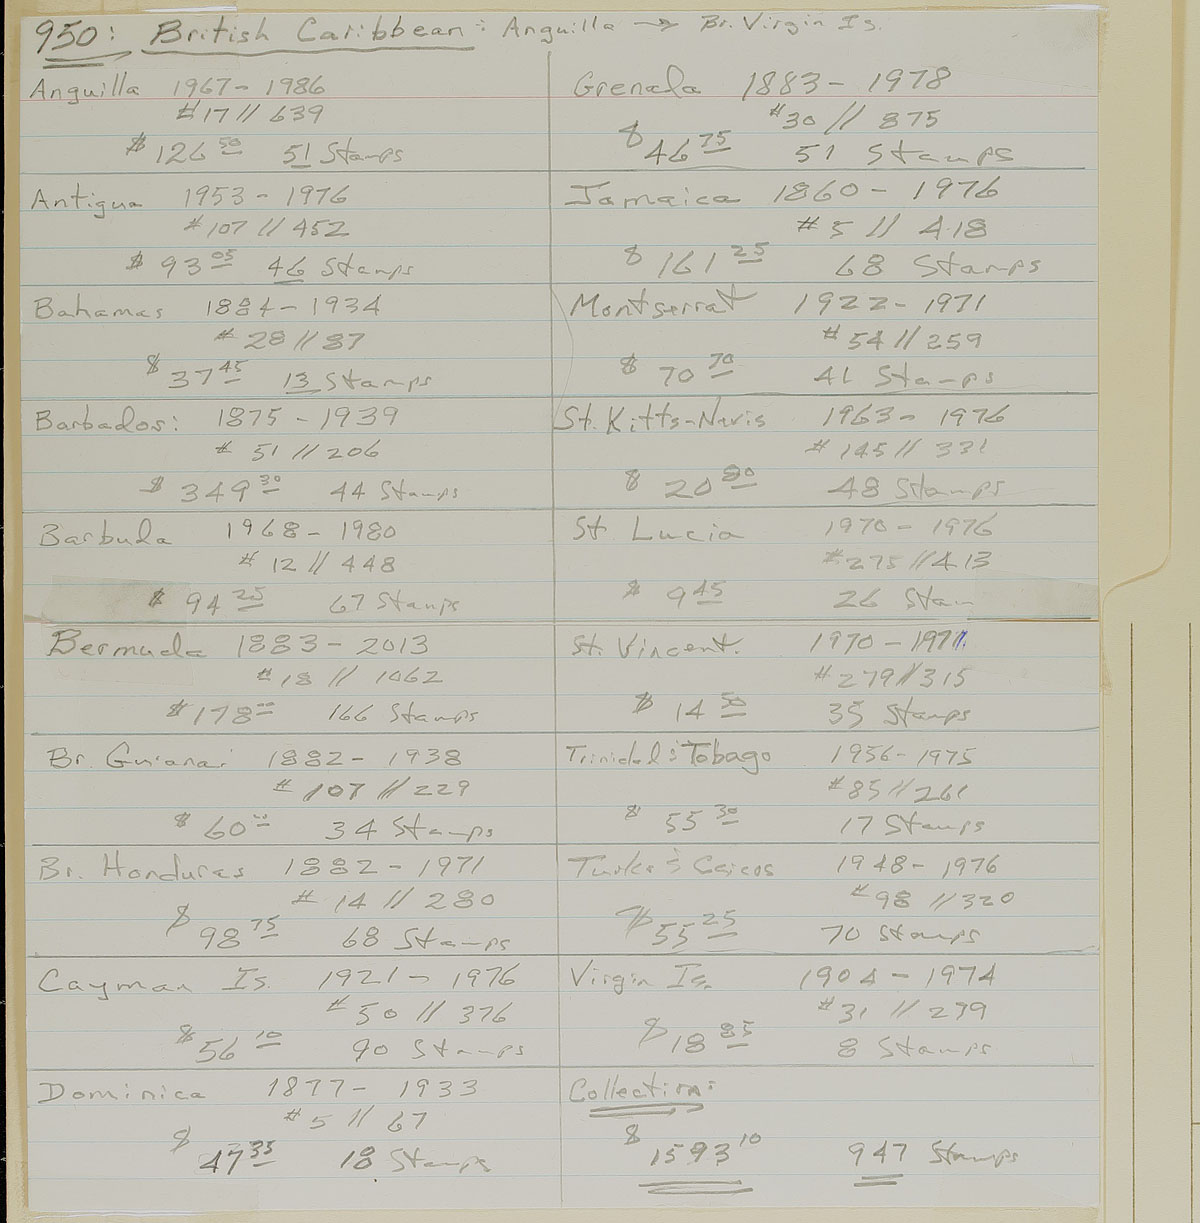 950: British Caribbean: Anguilla → Br. Virgin Is.
Anguilla 1967 - 1986
#17 // 639
$126 50 51 Stamps
Antigua 1953 - 1976
#107 // 452
$93 05 46 Stamps
Bahamas 1884 - 1934
#28 // 87
$37 45 13 Stamps
Barbados: 1875 - 1939
#51 // 206
$349 30 44 Stamps
Barbuda 1968 - 1980
#12 // 448
$94 25 67 Stamps
Bermuda 1883 - 2013
#18 // 1062
$178 00 166 Stamps
Br. Guiana: 1882 - 1938
#107 // 229
$60 34 Stamps
Br. Honduras 1882 - 1971
#14 // 280
$98 75 68 Stamps
Cayman Is. 1921 - 1976
#50 // 376
$56 10 90 Stamps
Dominica 1877 - 1933
#5 // 67
$47 35 18 Stamps
Grenada 1883 - 1978
#30 // 875
$46 75 51 Stamps
Jamaica 1860 - 1976
#5 // 418
$161 25 68 Stamps
Montserrat 1922 - 1971
#54 // 259
$70 70 41 Stamps
St. Kitts-Nevis 1963 - 1976
#145 // 331
$20 80 48 Stamps
St. Lucia 1970 - 1976
#275 // 413
$9 45 26 Stam
St. Vincent. 1970 - 1971.
#279 // 315
$14 50 35 Stamps
Trinidad & Tobago 1956 - 1975
#85 // 261
$55 30 17 Stamps
Turks & Caicos 1948 - 1976
#98 // 320
$55 25 70 Stamps
Virgin Is. 1904 - 1974
#31 // 239
$18 85 8 Stamps
Collection:
$1593 10 947 Stamps